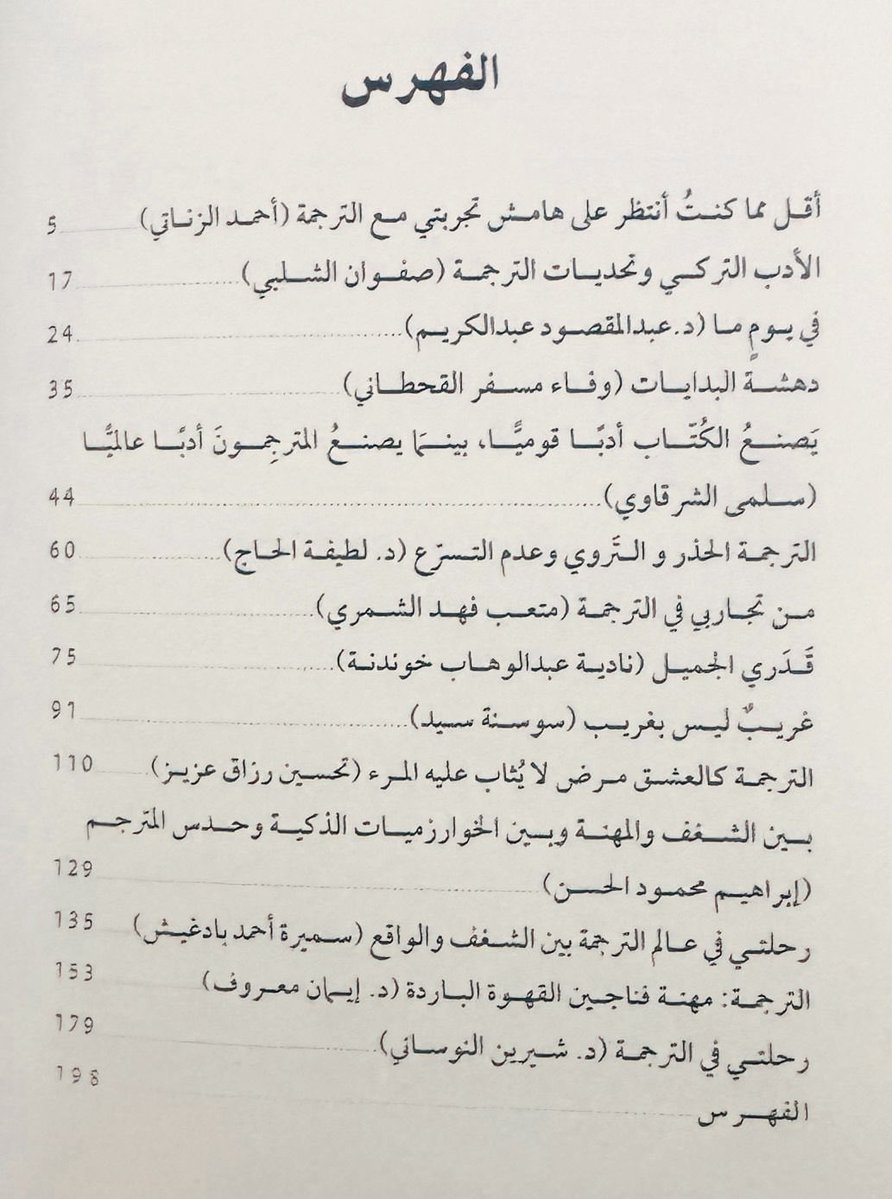 الفهرس
أقل مما كنتُ أنتظر على هامش تجربتي مع الترجمة (أحمد الزناتي) 5
الأدب التركي وتحديات الترجمة (صفوان الشلبي) 17
في يومٍ ما (د.عبدالمقصود عبدالكريم) 24
دهشة البدايات (وفاء مسفر القحطاني) 35
يَصنعُ الكُتّاب أدبًا قوميًّا، بينمَا يصنعُ المترجِمونَ أدبًا عالميًّا
(سلمى الشرقاوي) 44
الترجمة الحذر و التَروي وعدم التسرّع (د. لطيفة الحاج) 60
من تجاربي في الترجمة (متعب فهد الشمري) 65
قَدَري الجميل (نادية عبدالوهاب خوندنة) 75
غريبٌ ليس بغريب (سوسنة سيد) 91
الترجمة كالعشق مرض لا يُثاب عليه المرء (تحسين رزاق عزيز) 110
بين الشغف والمهنة وبين الخوارزميات الذكية وحدس المترجم
(إبراهيم محمود الحسن) 129
رحلتي في عالم الترجمة بين الشغف والواقع (سميرة أحمد بادغيش) 135
الترجمة: مهنة فناجين القهوة الباردة (د. إيمان معروف) 153
رحلتي في الترجمة (د. شيرين النوساني) 179
الفهرس 198